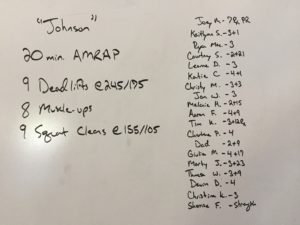 "Johnson"
20 min. AMRAP
9 Deadlifts @ 245/175
8 Muscle-ups
9 Squat Cleans @ 155/105
Joey K. - 7
Kaitlynn S. - 3+1
Ryan Mac - 3
Courtney S. - 2+21
Leanne D. - 3
Katie C - 4+1
Christy M. - 3+3
Jon W. - 3
Melanie H. - 2+15
Aaron F. - 4+9
Tim K. -
Charlene P. - 4
Dad - 2+9
Giulia M. - 4+17
Marty J. - 3+23
Theresa W. - 3+9
Devin D. - 4
Christina K. - 3
Sherrae F. - Strength